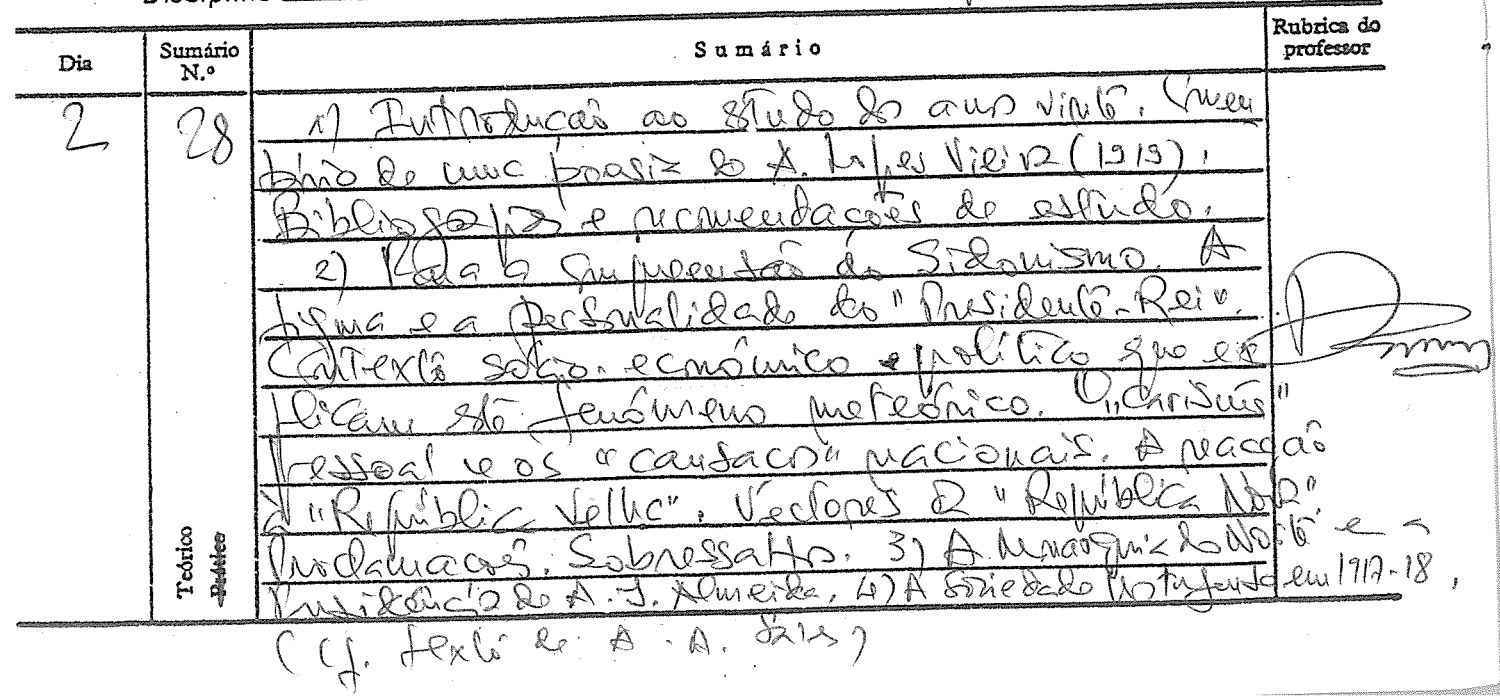 Dia
Sumário N.º
Sumário
Rubrica do professor
2
28
1) Introdução ao estudo dos anos vinte. Comen
tário de uma poesia de A. Lopes Vieira (1919).
Bibliografia e recomendações de estudo.
2) Para a compreensão do Sidonismo. A
figura e a personalidade do "Presidente-Rei".
Contexto sócio-económico e político que ex
plicam este fenómeno meteórico. O "carisma"
pessoal e os "cansaços" nacionais. A reacção
à "República Velha". Vectores da "República Nova"
Proclamações. Sobressaltos. 3) A Monarquia do Norte e a
Presidência de A. J. Almeida. 4) A Sociedade Portuguesa em 1917-18.
(Cf. texto de A. A.
Teórico
Prático